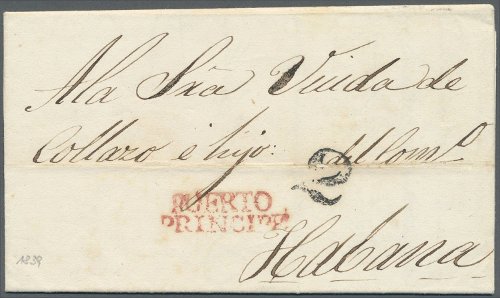 A la Sra Viuda de
Collazo é hijo: del Comº
2
PUERTO
PRINCIPE
Habana
1839